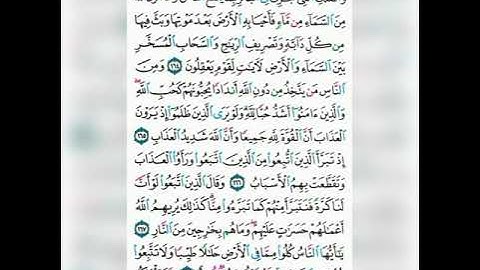 مِنَ ٱلسَّمَآءِ مِن مَّآءٍ فَأَحْيَا بِهِ ٱلْأَرْضَ بَعْدَ مَوْتِهَا وَبَثَّ فِيهَا
مِن كُلِّ دَآبَّةٍ وَتَصْرِيفِ ٱلرِّيَٰحِ وَٱلسَّحَابِ ٱلْمُسَخَّرِ
بَيْنَ ٱلسَّمَآءِ وَٱلْأَرْضِ لَأٓيَٰتٍ لِّقَوْمٍ يَعْقِلُونَ ١٦٤ وَمِنَ
ٱلنَّاسِ مَن يَتَّخِذُ مِن دُونِ ٱللَّهِ أَندَادًا يُحِبُّونَهُمْ كَحُبِّ ٱللَّهِ
وَٱلَّذِينَ ءَامَنُوٓا۟ أَشَدُّ حُبًّا لِّلَّهِ وَلَوْ يَرَى ٱلَّذِينَ ظَلَمُوٓا۟ إِذْ يَرَوْنَ
ٱلْعَذَابَ أَنَّ ٱلْقُوَّةَ لِلَّهِ جَمِيعًا وَأَنَّ ٱللَّهَ شَدِيدُ ٱلْعَذَابِ ١٦٥
إِذْ تَبَرَّأَ ٱلَّذِينَ ٱتُّبِعُوا۟ مِنَ ٱلَّذِينَ ٱتَّبَعُوا۟ وَرَأَوُا۟ ٱلْعَذَابَ
وَتَقَطَّعَتْ بِهِمُ ٱلْأَسْبَابُ ١٦٦ وَقَالَ ٱلَّذِينَ ٱتَّبَعُوا۟ لَوْ أَنَّ
لَنَا كَرَّةً فَنَتَبَرَّأَ مِنْهُمْ كَمَا تَبَرَّءُوا۟ مِنَّا كَذَٰلِكَ يُرِيهِمُ ٱللَّهُ
أَعْمَٰلَهُمْ حَسَرَٰتٍ عَلَيْهِمْ وَمَا هُم بِخَٰرِجِينَ مِنَ ٱلنَّارِ ١٦٧
يَٰٓأَيُّهَا ٱلنَّاسُ كُلُوا۟ مِمَّا فِى ٱلْأَرْضِ حَلَٰلًا طَيِّبًا وَلَا تَتَّبِعُوا۟